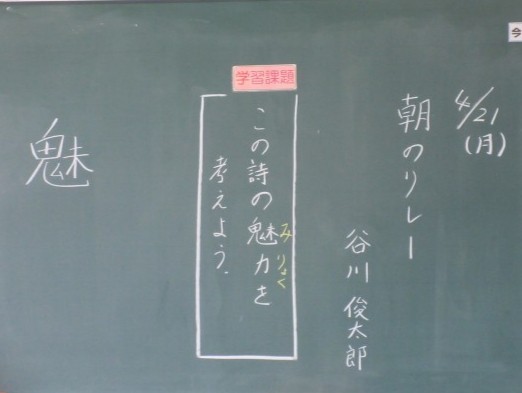 今
4/21
(月)
朝のリレー
谷川 俊太郎
学習課題
この詩の魅力を
みりょく
考えよう.
魅